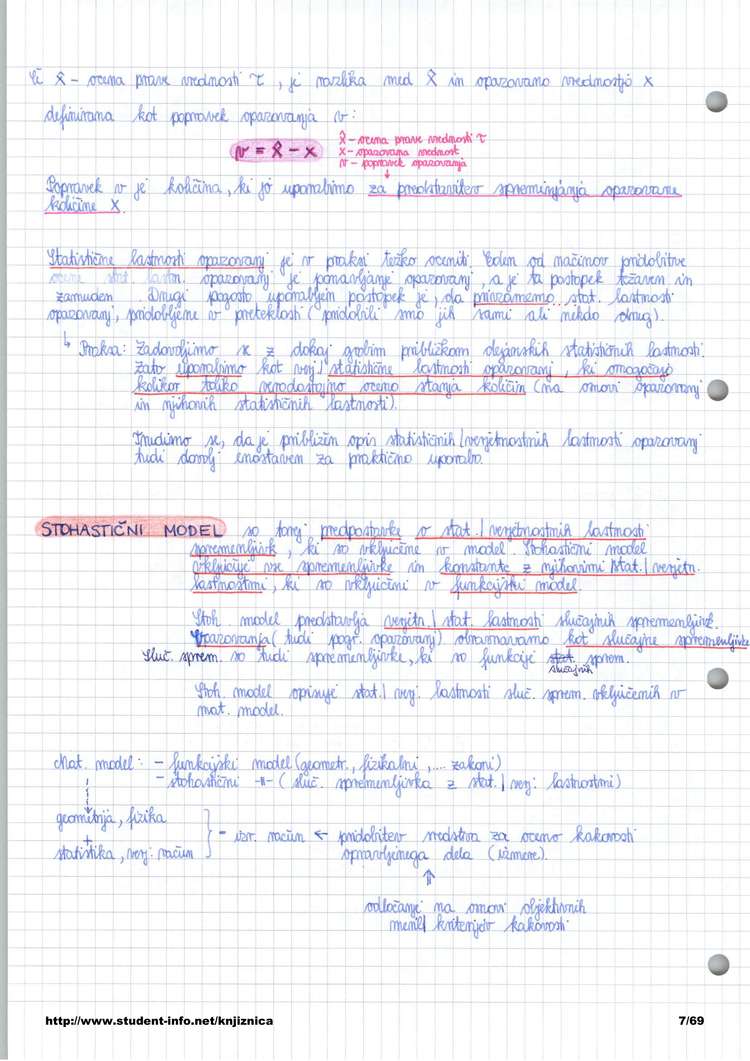 Če x̂ - ocena prave vrednosti τ, je razlika med x̂ in opazovano vrednostjo x
definirana kot popravek opazovanja v:
v = x̂ - x
x̂ - ocena prave vrednosti τ
x - opazovana vrednost
v - popravek opazovanja
Popravek v je količina, ki jo uporabimo za predstavitev spreminjanja opazovane
količine x.
Statistične lastnosti opazovanj je v praksi težko oceniti. Eden od načinov pridobitve
ocene stat. lastn. opazovanj je ponavljanje opazovanj, a je ta postopek težaven in
zamuden. Drugi pogosto uporabljen postopek je, da privzamemo stat. lastnosti
opazovanj, pridobljene v preteklosti (pridobili smo jih sami ali nekdo drug).
↳ Praksa: Zadovoljimo se z dokaj grobim približkom dejanskih statističnih lastnosti.
Zato uporabimo kot verj./statistične lastnosti opazovanj, ki omogočajo
kolikor toliko verodostojno oceno stanja količin (na osnovi opazovanj
in njihovih statističnih lastnosti).
Trudimo se, da je približen opis statističnih/verjetnostnih lastnosti opazovanj
tudi dovolj enostaven za praktično uporabo.
STOHASTIČNI MODEL so torej predpostavke o stat./verjetnostnih lastnosti
spremenljivk, ki so vključene v model. Stohastični model
vključuje vse spremenljivke in konstante z njihovimi stat./verjetn.
lastnostmi, ki so vključeni v funkcijski model.
Stoh. model predstavlja verjetn./stat. lastnosti slučajnih spremenljivk.
Opazovanja (tudi pogr. opazovanj) obravnavamo kot slučajne spremenljivke
Sluč. sprem. so tudi spremenljivke, ki so funkcije stat. sprem.
slučajnih
Stoh. model opisuje stat./verj. lastnosti sluč. sprem. vključenih v
mat. model.
Mat. model: - funkcijski model (geometr., fizikalni, .... zakoni)
- stohastični -||- (sluč. spremenljivka z stat./verj. lastnostmi)
geometrija, fizika
+
statistika, verj. račun
- izr. račun ← pridobitev sredstva za oceno kakovosti
opravljenega dela (izmere).
⇑
odločanje na osnovi objektivnih
meril/kriterijev kakovosti
http://www.student-info.net/knjiznica
7/69